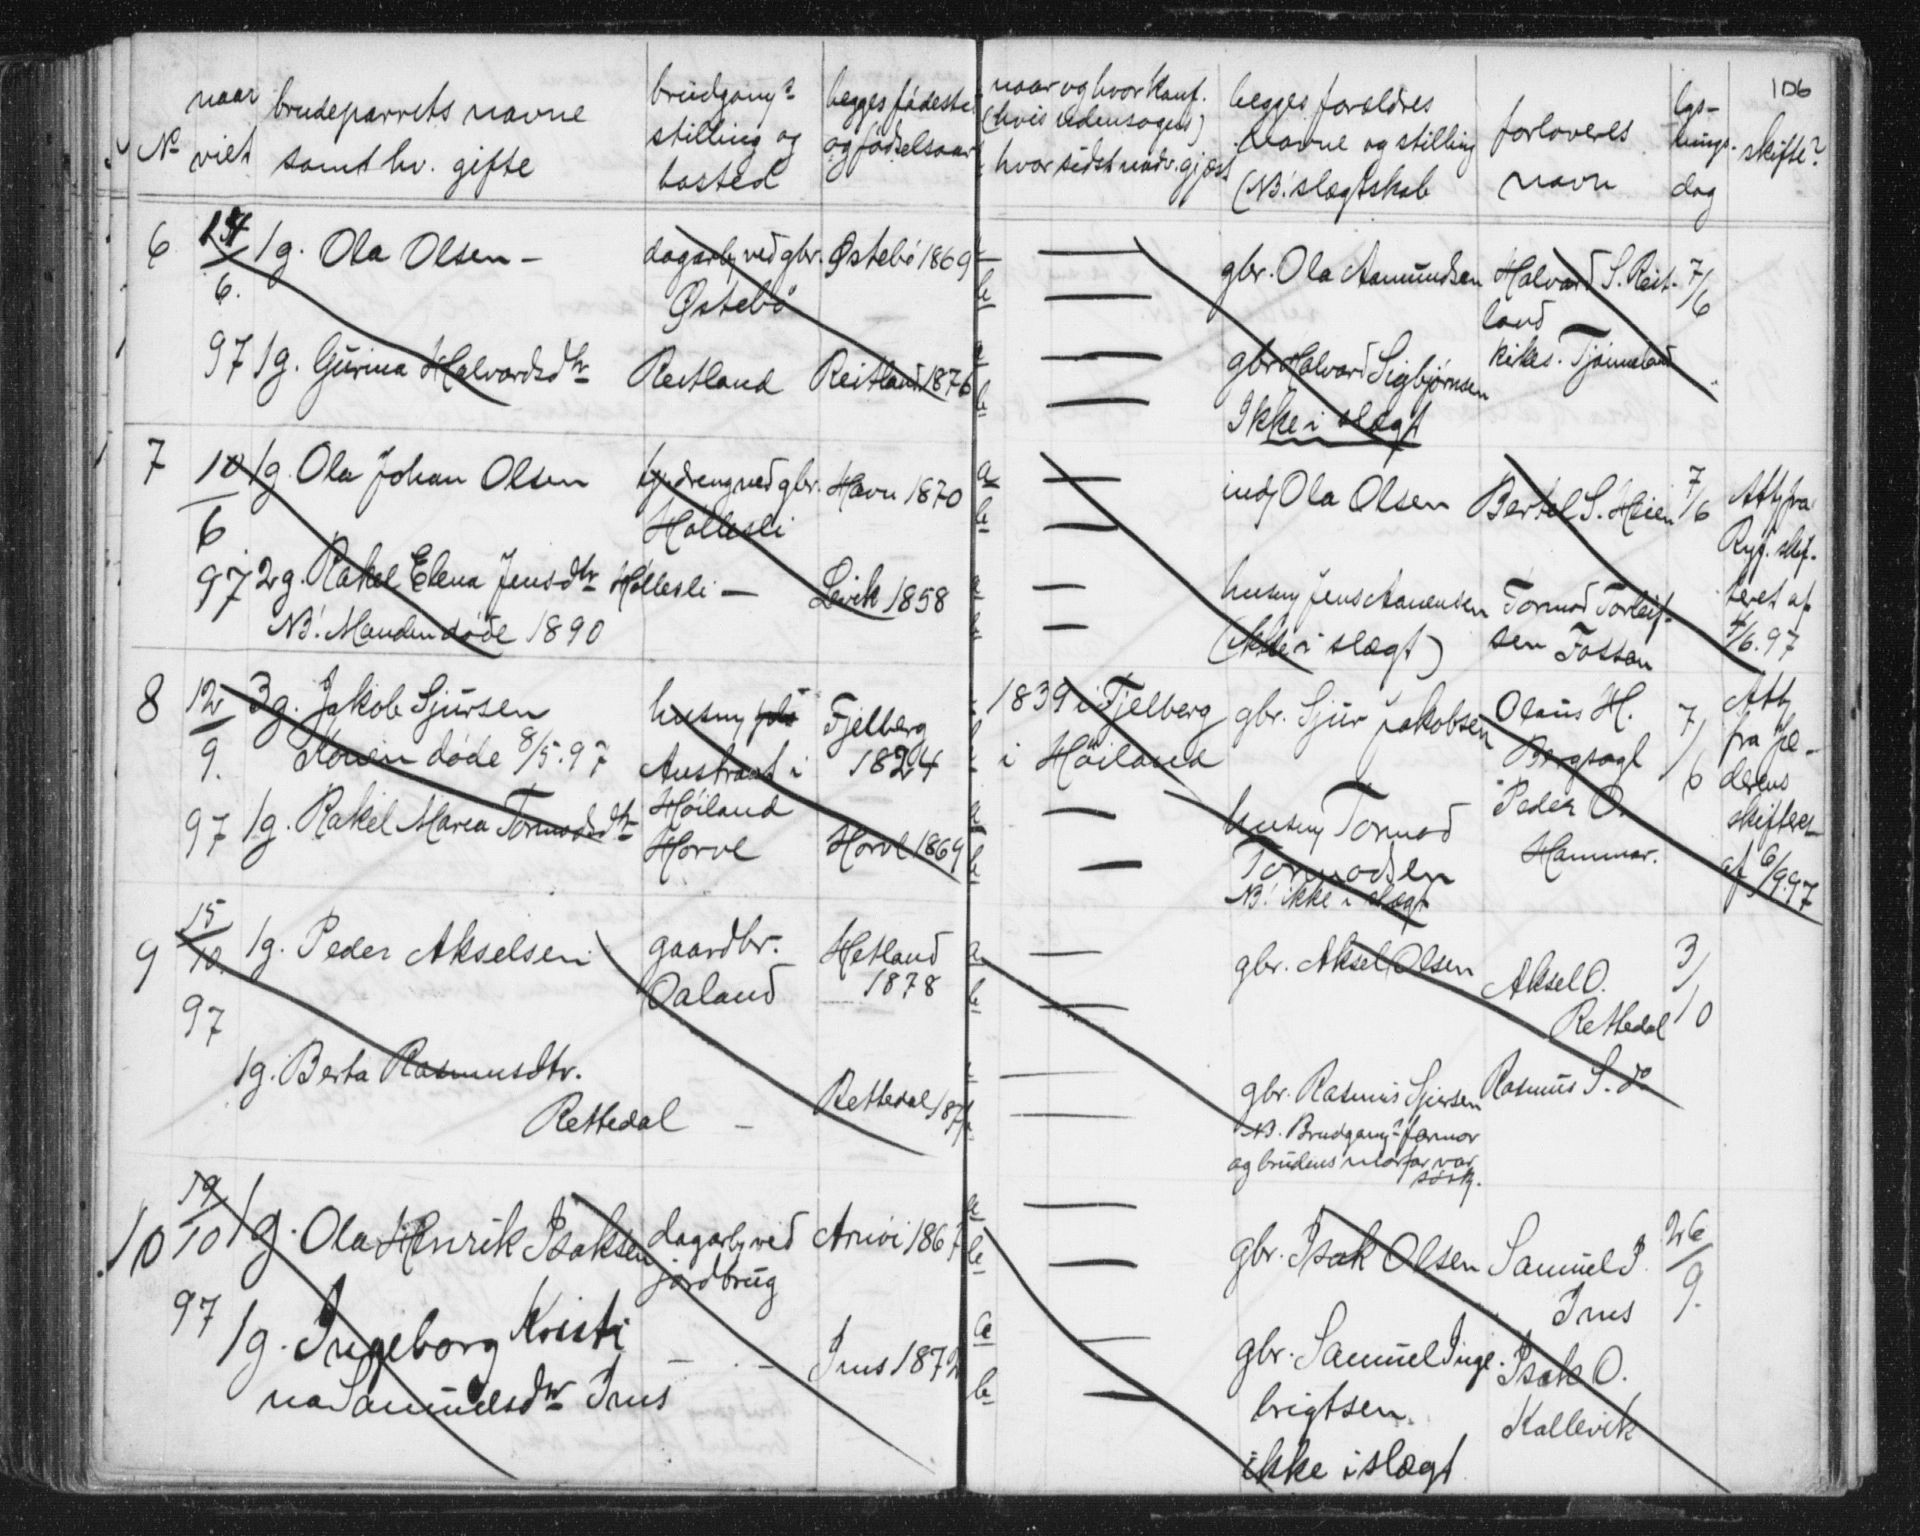 106
No
naar viet
brudeparrets navne samt hv. gifte
brudgoms stilling og bosted
begges fødested og fødselsaar
naar og hvor konf. (hvis udensogns) hvor sidst nadv. gjæst
begges forældres navne og stilling (NB. slægtskab
forloveres navn
lysningsdag
skifte?
6
6.
97
1g. Ola Olsen –
dagarb. ved gbr.
Østebø
Østebø 1869
a
b
gbr. Ola Aamundsen
Halvard S. Reit-
land
7/6
1g. Gurina Halvardsdtr
Reitland
Reitland 1876
a
b
gbr Halvard Sigbjørnsen
Ikke i slægt
kirkes. Tjømeland
7
10/6
97
1g. Ola Johan Olsen
ved gbr.
Hollesli
Havn 1870
a
b
Ola Olsen
Bertel S. Heien
7/6
Att. fra
Ryf. skif-
teret af
4/6.97
2g. Rakel Elena Jensdtr
Hollesli –
Levik 1858
NB. Manden døde 1890
husm Jens Aanensen
(ikke i slægt)
Tormod Torleif-
sen Fossan
8
12/9.
97
3g. Jakob Sjursen
Konen døde 8/5.97
husm
Austraat i
Høiland
Fjelberg
1824
1839 i Fjelberg
i Høiland
gbr. Sjur Jakobsen
Olaus H.
Bergsagl
7/6
Att.
fra
derens
skifteret
af 6/9.97
1g. Rakel Marea Tormodsdtr
Horve
Horve 1869
a
b
husm Tormod
Tormodsen
NB. ikke i slægt
Peder O.
Hammer.
9
15/10.
97
1g. Peder Akselsen
gaardbr.
Oaland
Hetland
1878
a
b
gbr. Aksel Olsen
Aksel O.
Rettedal
3/10
1g. Berta Rasmusdtr.
Rettedal –
Rettedal 187
gbr. Rasmus Sjursen
NB. Brudgoms farmor
og brudens morfar var
søsk.
Rasmus S. do
10
19/10
97
1g. Ola Henrik Isaksen
dagarb. ved
jordbrug
Arnøi 1867
a
b
gbr. Isak Olsen
Samuel I.
Ims
26/9.
1g. Ingeborg Kristi
na Samuelsdtr Ims
– . –
Ims 1872
a
b
gbr. Samuel Inge-
brigtsen.
ikke i slægt
Isak O.
Kallevik